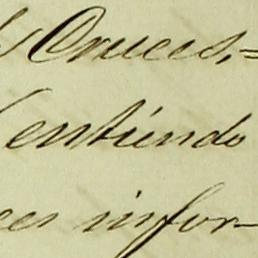 s Cruces,=
entiendo
ces infor-